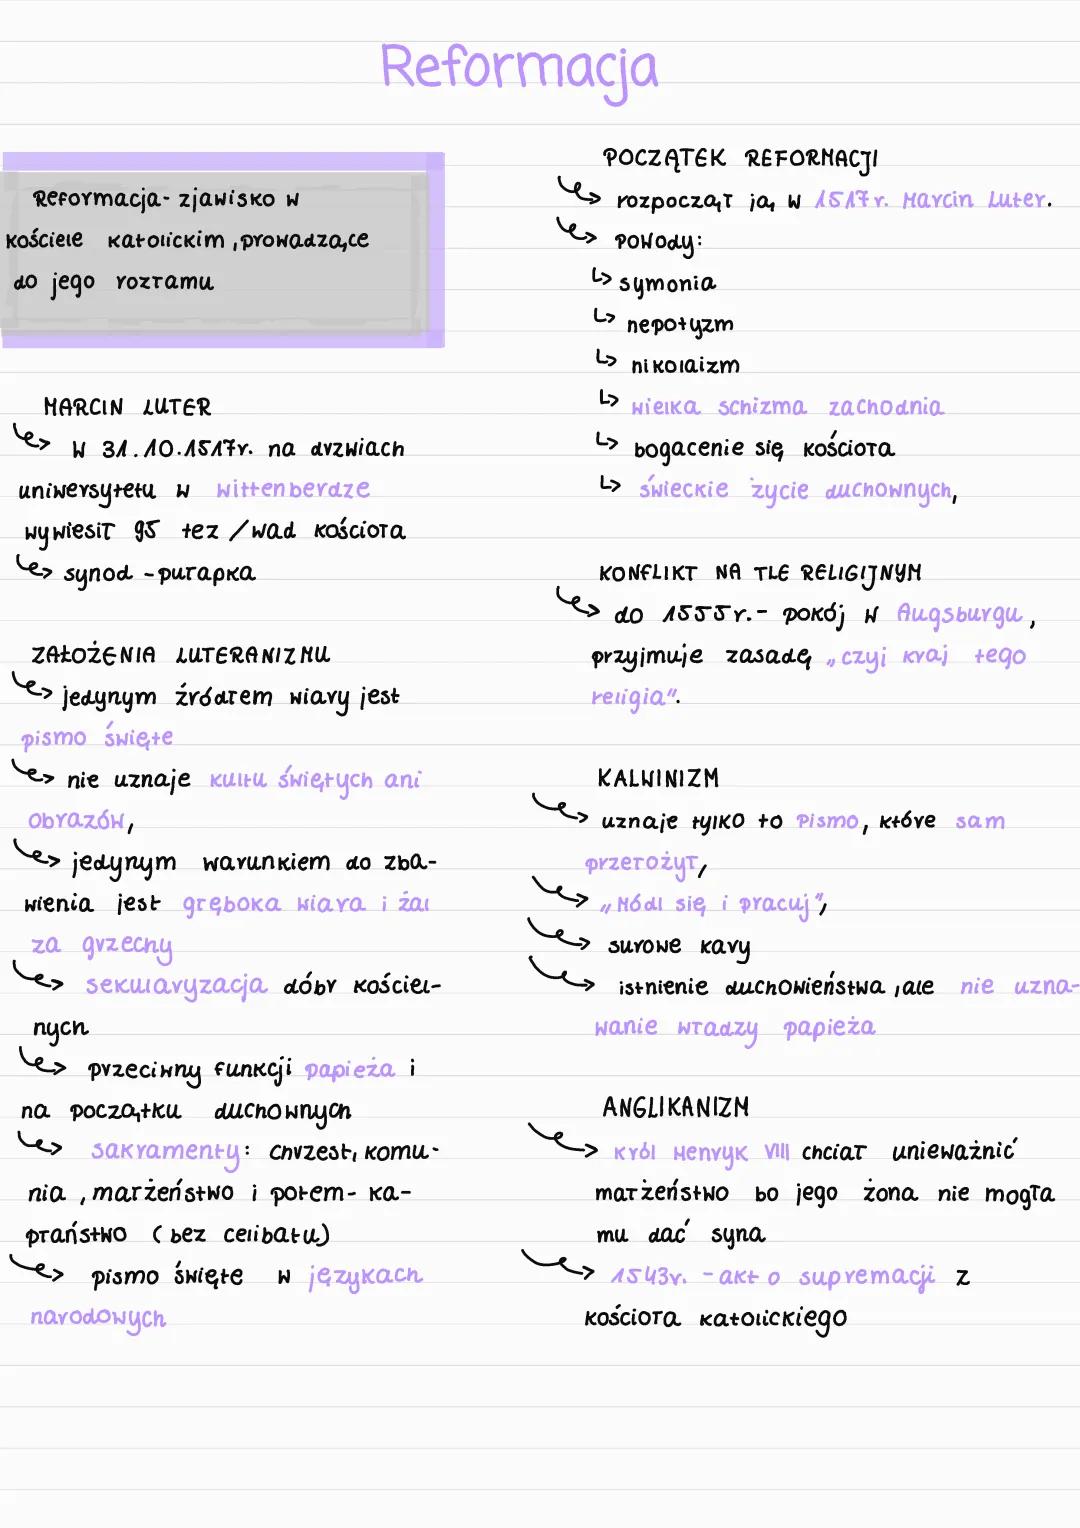 Reformacja
Reformacja- zjawisko w
kościele katolickim, prowadzące
do jego rozłamu
MARCIN LUTER
W 31.10.1517r. na drzwiach
uniwersytetu w wittenberdze
wywiesił 95 tez / wad kościoła
synod - pułapka
ZAŁOŻENIA LUTERANIZMU
jedynym źródłem wiary jest
pismo święte
nie uznaje kultu świętych ani
obrazów,
jedynym warunkiem do zba-
wienia jest głęboka wiara i żal
za grzechy
sekularyzacja dóbr kościel-
nych
przeciwny funkcji papieża i
na początku duchownych
sakramenty: chrzest, komu-
nia, małżeństwo i potem- ka-
płaństwo (bez celibatu)
pismo święte w językach
narodowych
POCZĄTEK REFORMACJI
rozpoczął ją w 1517r. Marcin Luter.
powody:
symonia
nepotyzm
nikolaizm
wielka schizma zachodnia
bogacenie się kościoła
świeckie życie duchownych,
KONFLIKT NA TLE RELIGIJNYM
do 1555r.- pokój w Augsburgu,
przyjmuje zasadę „czyj kraj tego
religia".
KALWINIZM
uznaje tylko to Pismo, które sam
przełożył,
„Módl się i pracuj",
surowe kary
istnienie duchowieństwa, ale nie uzna-
wanie władzy papieża
ANGLIKANIZM
król Henryk VIII chciał unieważnić
małżeństwo bo jego żona nie mogła
mu dać syna
1543r. - akt o supremacji z
kościoła katolickiego